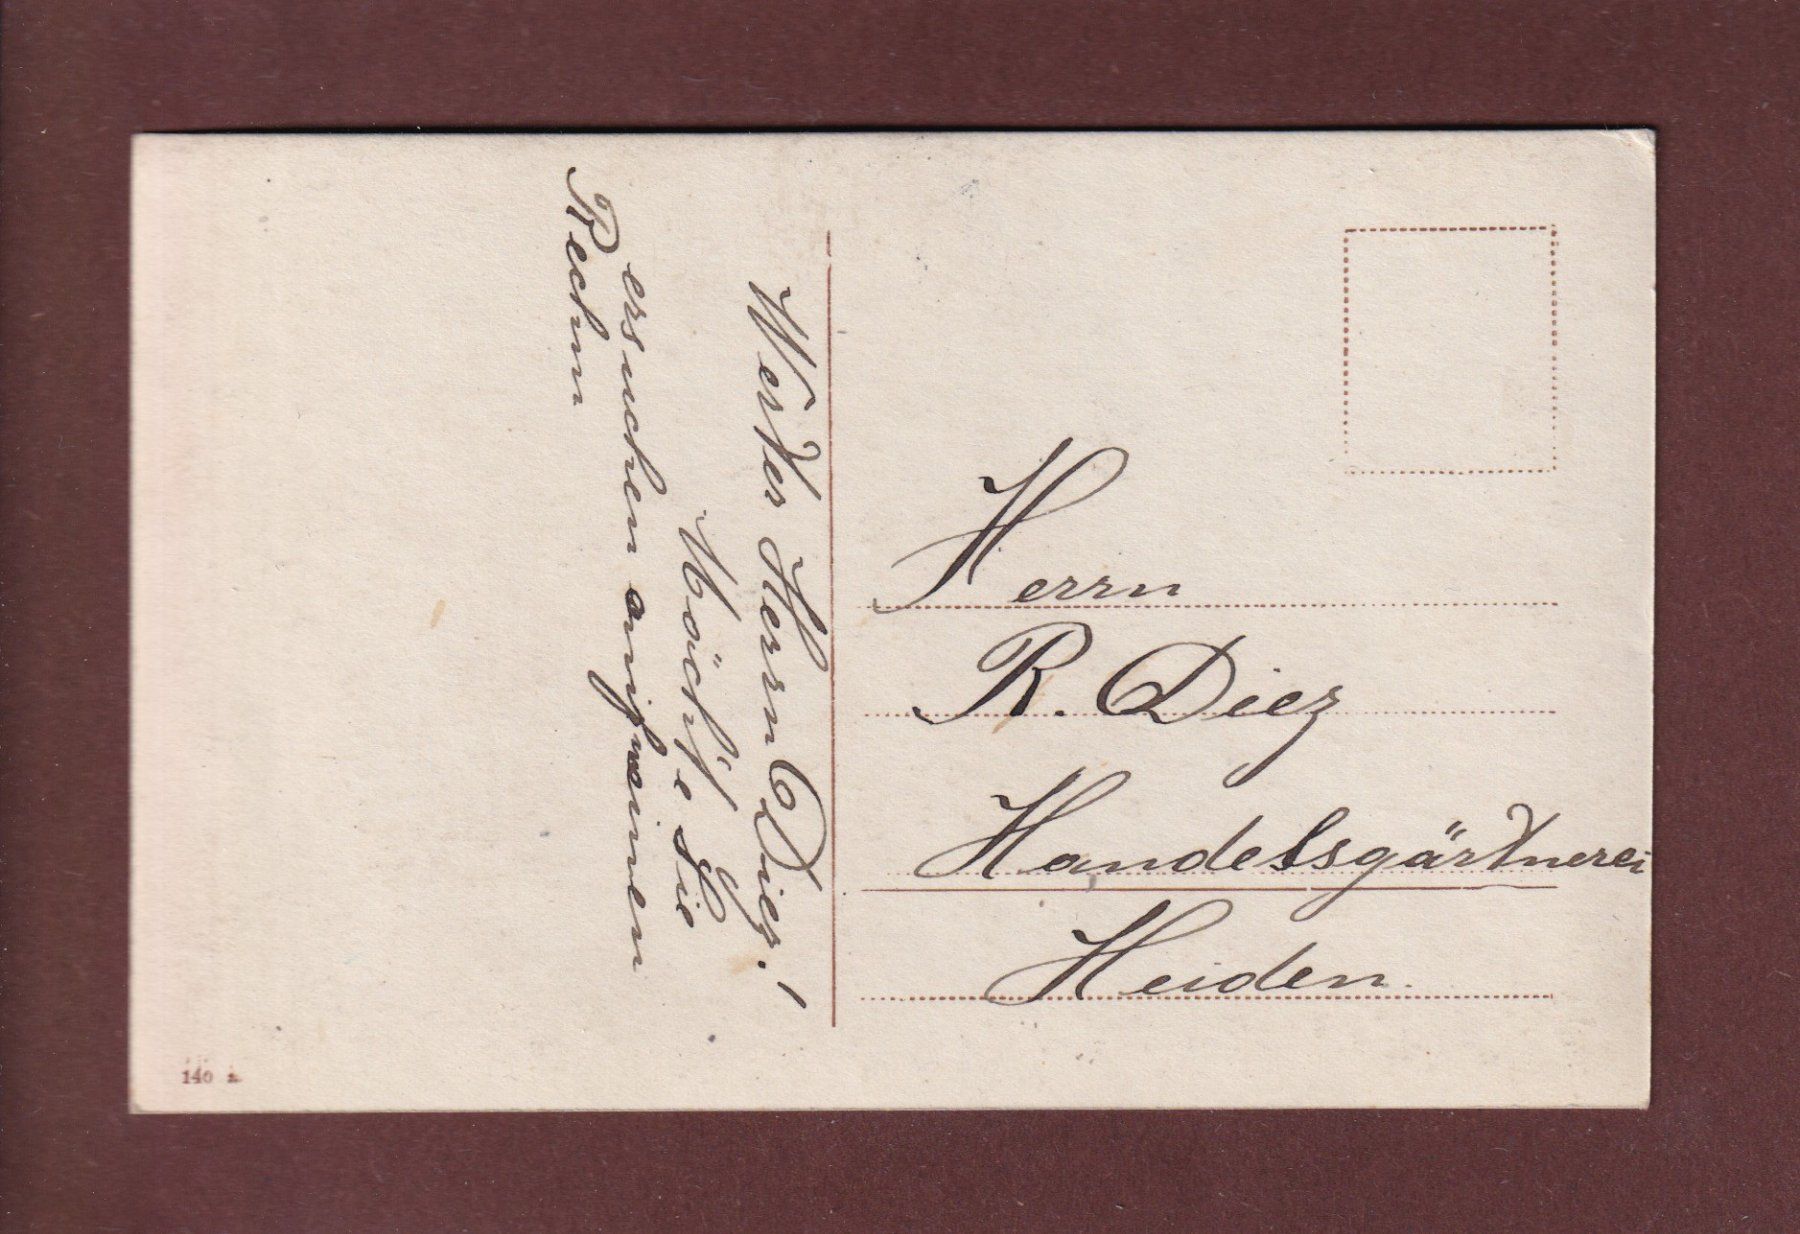 Werter Herrn Diez!
Möchte Sie
ersuchen auf meinen
Rechn
Herrn
R. Diez
Handelsgärtnerei
Heiden.
140